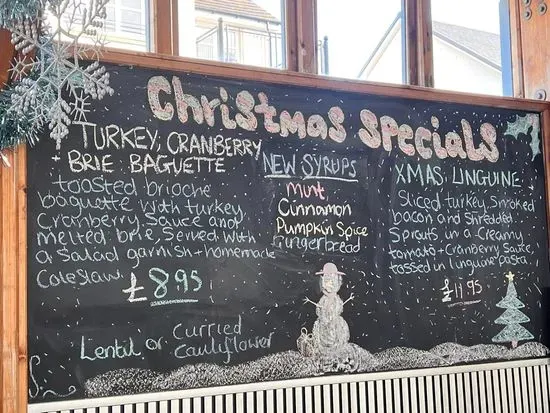 Christmas Specials
TURKEY, CRANBERRY
+ BRIE BAGUETTE
toasted brioche
baguette with turkey
Cranberry Sauce and
melted brie, Served with
a Salad garnish + homemade
Coleslaw.
£8.95
Lentil or Curried
Cauliflower
NEW SYRUPS
Mint
Cinnamon
Pumpkin Spice
Gingerbread
XMAS LINGUINE
Sliced turkey, Smoked
bacon and Shredded
Sprouts in a Creamy
tomato + Cranberry Sauce
tossed in linguine pasta.
£11.95